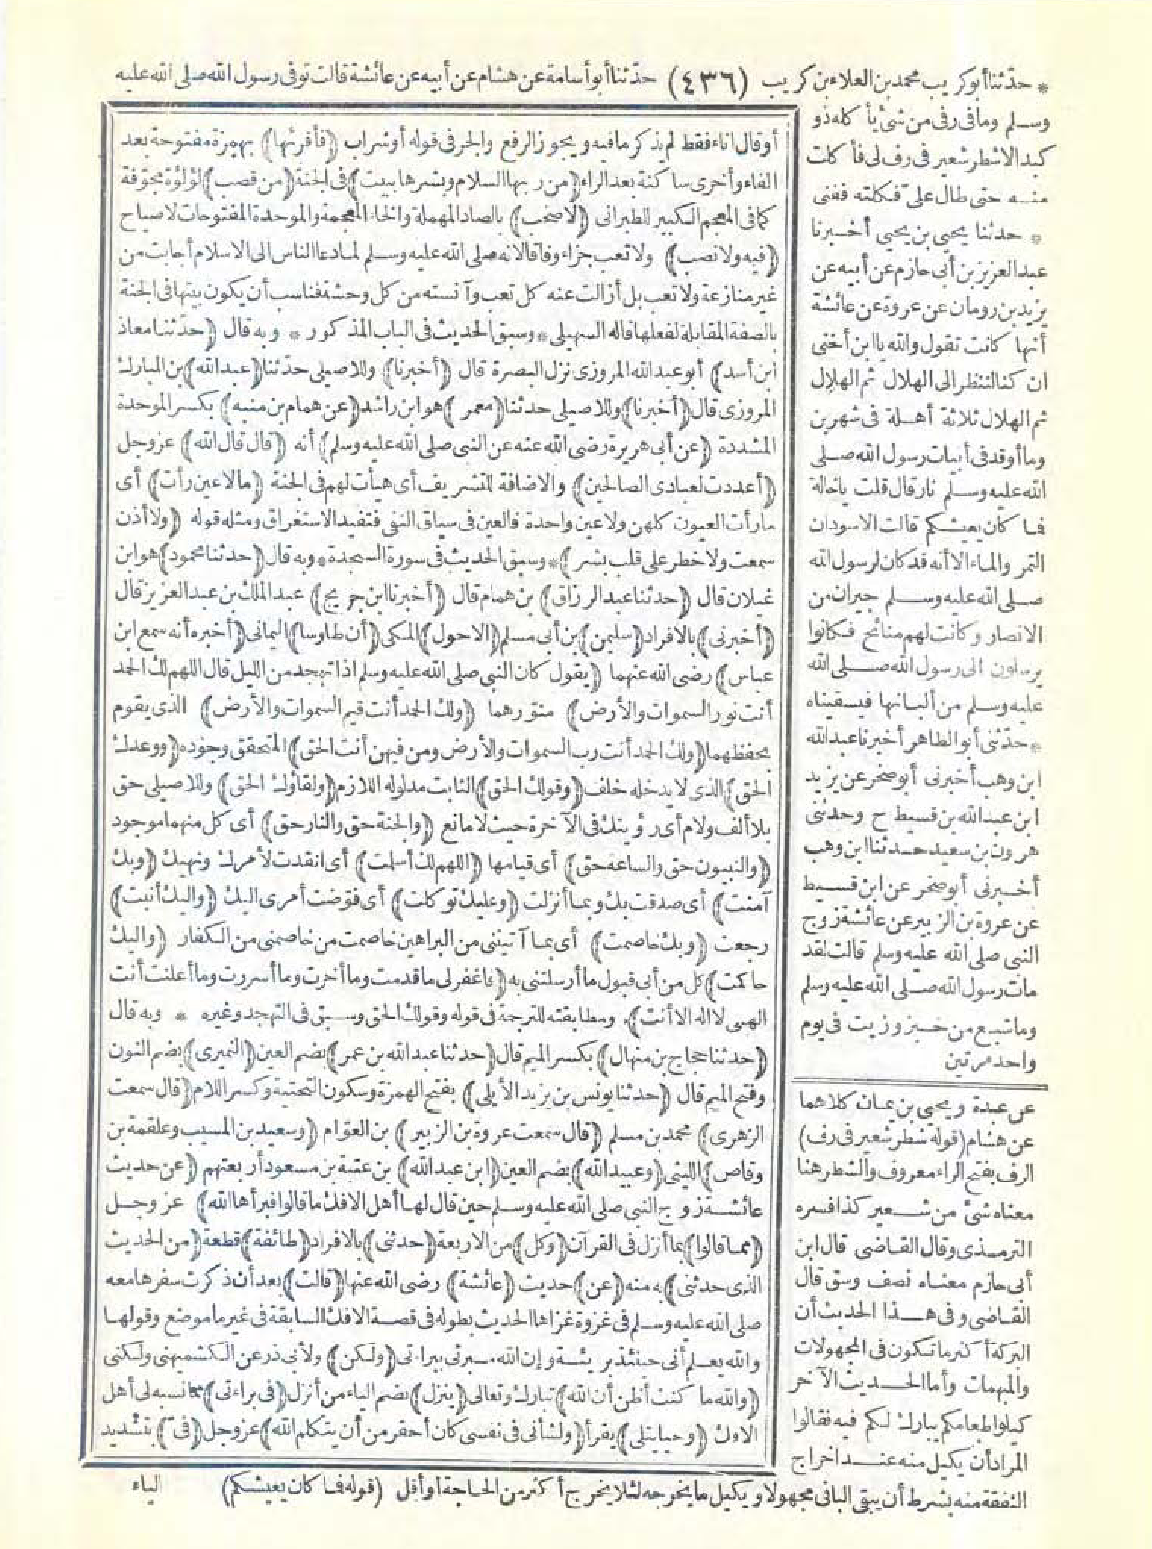 * حدثنا أبو كريب محمد بن العلاء بن كريب (٤٣٦) حدثنا أبو أسامة عن هشام عن أبيه عن عائشة قالت توفى رسول الله صلى الله عليه
وسلم وما فى رفى من شئ يأكله ذو
كبد الا شطر شعير فى رف لى فأكلت
منه حتى طال على فكلته ففنى
* حدثنا يحيى بن يحيى أخبرنا
عبد العزيز بن أبى حازم عن أبيه عن
يزيد بن رومان عن عروة عن عائشة
أنها كانت تقول والله يا ابن أختى
ان كنا لننظر الى الهلال ثم الهلال
ثم الهلال ثلاثة أهلة فى شهرين
وما أوقد فى أبيات رسول الله صلى
الله عليه وسلم نار قال قلت يا خالة
فما كان يعيشكم قالت الاسودان
التمر والماء الا أنه قد كان لرسول الله
صلى الله عليه وسلم جيران من
الانصار وكانت لهم منائح فكانوا
يرسلون الى رسول الله صلى الله
عليه وسلم من ألبانها فيسقيناه
* حدثنى أبو الطاهر أخبرنا عبد الله
ابن وهب أخبرنى أبو صخر عن يزيد
ابن عبد الله بن قسيط ح وحدثنى
هرون بن سعيد حدثنا ابن وهب
أخبرنى أبو صخر عن ابن قسيط
عن عروة بن الزبير عن عائشة زوج
النبى صلى الله عليه وسلم قالت لقد
مات رسول الله صلى الله عليه وسلم
وما شبع من خبز وزيت فى يوم
واحد مرتين
عن عبدة ويحيى بن يمان كلاهما
عن هشام (قوله شطر شعير فى رف)
الرف بفتح الراء معروف والشطر هنا
معناه شئ من شعير كذا فسره
الترمذى وقال القاضى قال ابن
أبى حازم معناه نصف وسق قال
القاضى وفى هذا الحديث أن
البركة أكثر ما تكون فى المجهولات
والمبهمات وأما الحديث الآخر
كيلوا طعامكم يبارك لكم فيه فقالوا
المراد أن يكيل منه عند اخراج
النفقة منه بشرط أن يبقى الباقى مجهولا ويكيل ما يخرجه لئلا يخرج أكثر من الحاجة أو أقل (قوله فما كان يعيشكم)
أو قال اناء فقط لم يذكر ما فيه ويجوز الرفع والجر فى قوله أو شراب (فأقرئها) بهمزة مفتوحة بعد
الفاء وأخرى ساكنة بعد الراء (من ربها السلام وبشرها ببيت) فى الجنة (من قصب) لؤلؤة مجوفة
كما فى المعجم الكبير للطبرانى (لا صخب) بالصاد المهملة والخاء المعجمة والموحدة المفتوحات لا صياح
(فيه ولا نصب) ولا تعب جزاء وفاقا لانه صلى الله عليه وسلم لما دعا الناس الى الاسلام أجابت من
غير منازعة ولا تعب بل أزالت عنه كل تعب وآنسته من كل وحشة فناسب أن يكون بيتها فى الجنة
بالصفة المقابلة لفعلها قاله السهيلى * وسبق الحديث فى الباب المذكور * وبه قال (حدثنا معاذ
ابن أسد) أبو عبد الله المروزى نزل البصرة قال (أخبرنا) وللاصيلى حدثنا (عبد الله) بن المبارك
المروزى قال (أخبرنا) وللاصيلى حدثنا (معمر) هو ابن راشد (عن همام بن منبه) بكسر الموحدة
المشددة (عن أبى هريرة رضى الله عنه عن النبى صلى الله عليه وسلم) أنه (قال قال الله) عز وجل
(أعددت لعبادى الصالحين) والاضافة للتشريف أى هيأت لهم فى الجنة (ما لا عين رأت) أى
ما رأت العيون كلهن ولا عين واحدة فالعين فى سياق النفى فتفيد الاستغراق ومثله قوله (ولا أذن
سمعت ولا خطر على قلب بشر) * وسبق الحديث فى سورة السجدة * وبه قال (حدثنا محمود) هو ابن
غيلان قال (حدثنا عبد الرزاق) بن همام قال (أخبرنا ابن جريج) عبد الملك بن عبد العزيز قال
(أخبرنى) بالافراد (سليمن) بن أبى مسلم (الاحول) المكى (أن طاوسا) اليمانى (أخبره أنه سمع ابن
عباس) رضى الله عنهما (يقول كان النبى صلى الله عليه وسلم اذا تهجد من الليل قال اللهم لك الحمد
أنت نور السموات والأرض) منورهما (ولك الحمد أنت قيم السموات والأرض) الذى يقوم
بحفظهما (ولك الحمد أنت رب السموات والأرض ومن فيهن أنت الحق) المتحقق وجوده (ووعدك
الحق) الذى لا يدخله خلف (وقولك الحق) الثابت مدلوله اللازم (ولقاؤك الحق) وللاصيلى حق
بلا ألف ولام أى رؤيتك فى الآخرة حيث لا مانع (والجنة حق والنار حق) أى كل منهما موجود
(والنبيون حق والساعة حق) أى قيامها (اللهم لك أسلمت) أى انقدت لأمرك ونهيك (وبك
آمنت) أى صدقت بك وبما أنزلت (وعليك توكلت) أى فوضت أمرى اليك (واليك أنبت)
رجعت (وبك خاصمت) أى بما آتيتنى من البراهين خاصمت من خاصمنى من الكفار (واليك
حاكمت) كل من أبى قبول ما أرسلتنى به (فاغفر لى ما قدمت وما أخرت وما أسررت وما أعلنت أنت
الهى لا اله الا أنت) ومطابقته للترجمة فى قوله وقولك الحق وسبق فى التهجد وغيره * وبه قال
(حدثنا حجاج بن منهال) بكسر الميم قال (حدثنا عبد الله بن عمر) بضم العين (النميرى) بضم النون
وفتح الميم قال (حدثنا يونس بن يزيد الأيلى) بفتح الهمزة وسكون التحتية وكسر اللام (قال سمعت
الزهرى) محمد بن مسلم (قال سمعت عروة بن الزبير) بن العوام (وسعيد بن المسيب وعلقمة بن
وقاص) الليثى (وعبيد الله) بضم العين (ابن عبد الله) بن عتبة بن مسعود أربعتهم (عن حديث
عائشة زوج النبى صلى الله عليه وسلم حين قال لها أهل الافك ما قالوا فبرأها الله) عز وجل
(مما قالوا) بما أنزل فى القرآن (وكل) من الاربعة (حدثنى) بالافراد (طائفة) قطعة (من الحديث
الذى حدثنى) به منه (عن) حديث (عائشة) رضى الله عنها (قالت) بعد أن ذكرت سفرها معه
صلى الله عليه وسلم فى غزوة غزاها الحديث بطوله فى قصة الافك السابقة فى غير ما موضع وقولها
والله يعلم أنى حينئذ بريئة وإن الله مبرئى ببراءتى (ولكن) ولأبى ذر عن الكشميهنى ولكنى
(والله ما كنت أظن أن الله) تبارك وتعالى (ينزل) بضم الياء من أنزل (فى براءتى) مما نسبه لى أهل
الافك (وحيا يتلى) يقرأ (ولشأنى فى نفسى كان أحقر من أن يتكلم الله) عز وجل (فى) بتشديد
الياء